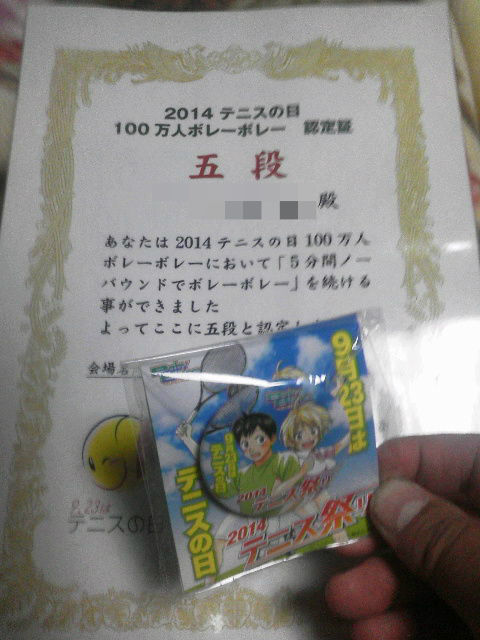 2014 テニスの日
100万人ボレーボレー 認定証
五段
殿
あなたは2014テニスの日100万人
ボレーボレーにおいて「5分間ノー
バウンドでボレーボレー」を続ける
事ができました
よってここに五段と認定し
会場名
9月23日は
テニスの日
9月23日は
テニスの日
2014
テニス祭り
2014
テニス祭り
9.23は
テニスの日